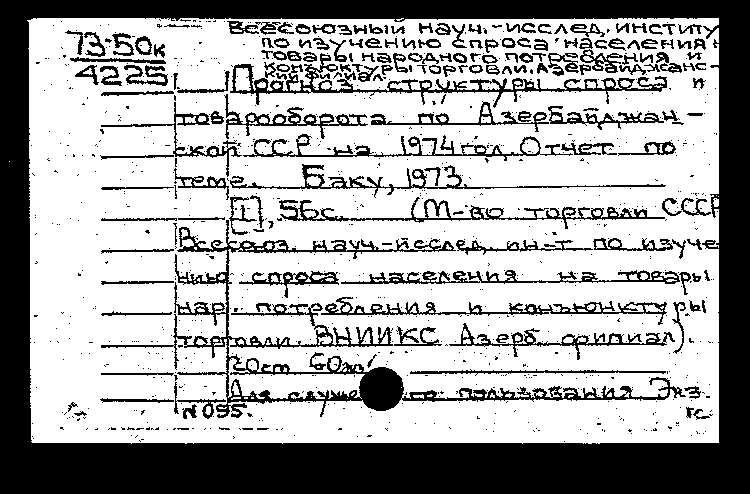 73-50к
4225
Всесоюзный науч.-исслед. институ
по изучению спроса населения
товары народного потребления и
конъюктуры торговли. Азербайджанс-
кий филиал.
Прогноз структуры спроса и
товарооборота по Азербайджан-
ской ССР на 1974 год. Отчет по
теме. Баку, 1973.
[1], 56с. (М-во торговли СССР
Всесоюз. науч-исслед. ин-т по изуче
нию спроса населения на товары
нар. потребления и конъюнктуры
торговли. ВНИИКС Азерб. филиал).
20см 60экз
Для служе го пользования Экз.
N 095.
гс